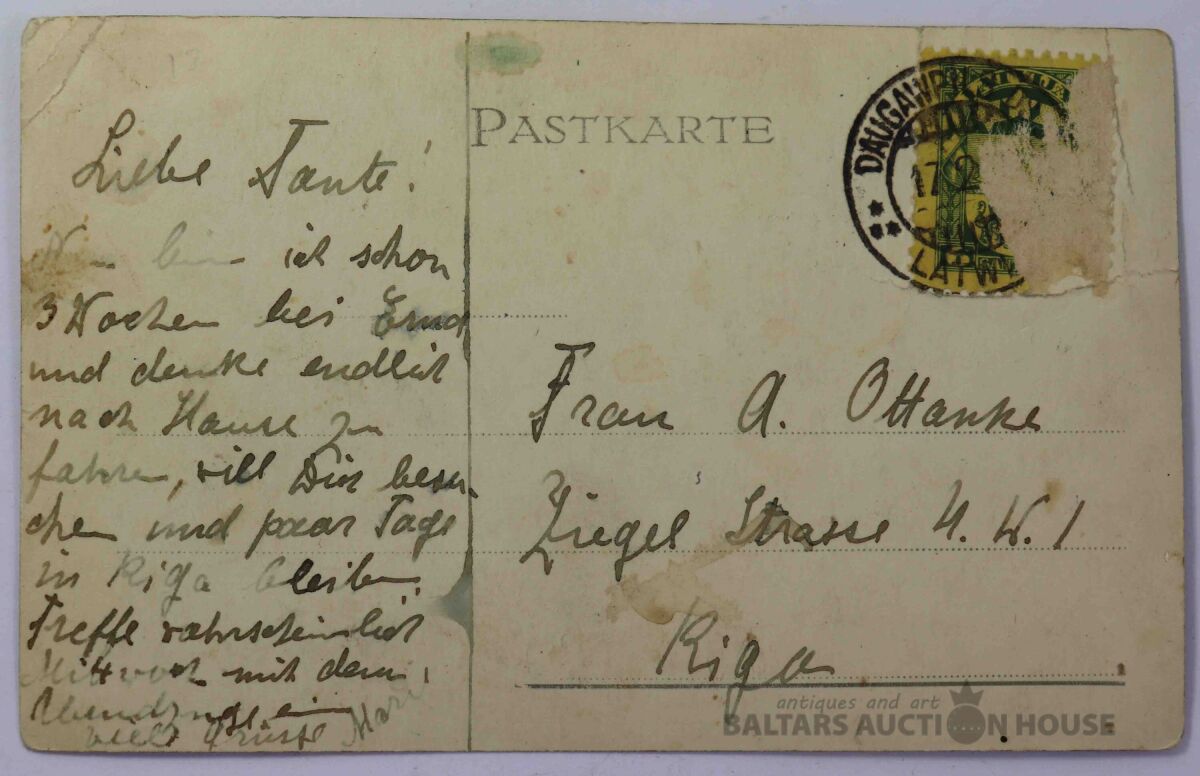 PASTKARTE
Liebe Tante!
Nun bin ich schon
3 Wochen bei Erna
und denke endlich
nach Hause zu
fahren, will Dich besu-
chen und paar Tage
in Riga bleiben.
Treffe wahrscheinlich
Mittwoch mit dem
Abendzuge ein
viele Grüsse Marie
LATVIJA
DAUGAWP
17 2
LATW
Frau A. Ottanke
Ziegel Strasse 4. W. 1
Riga
antiques and art
BALTARS AUCTION HOUSE